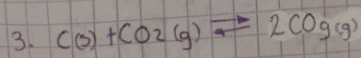 3. C(s) + CO2 (g) ⇌ 2COg (g)